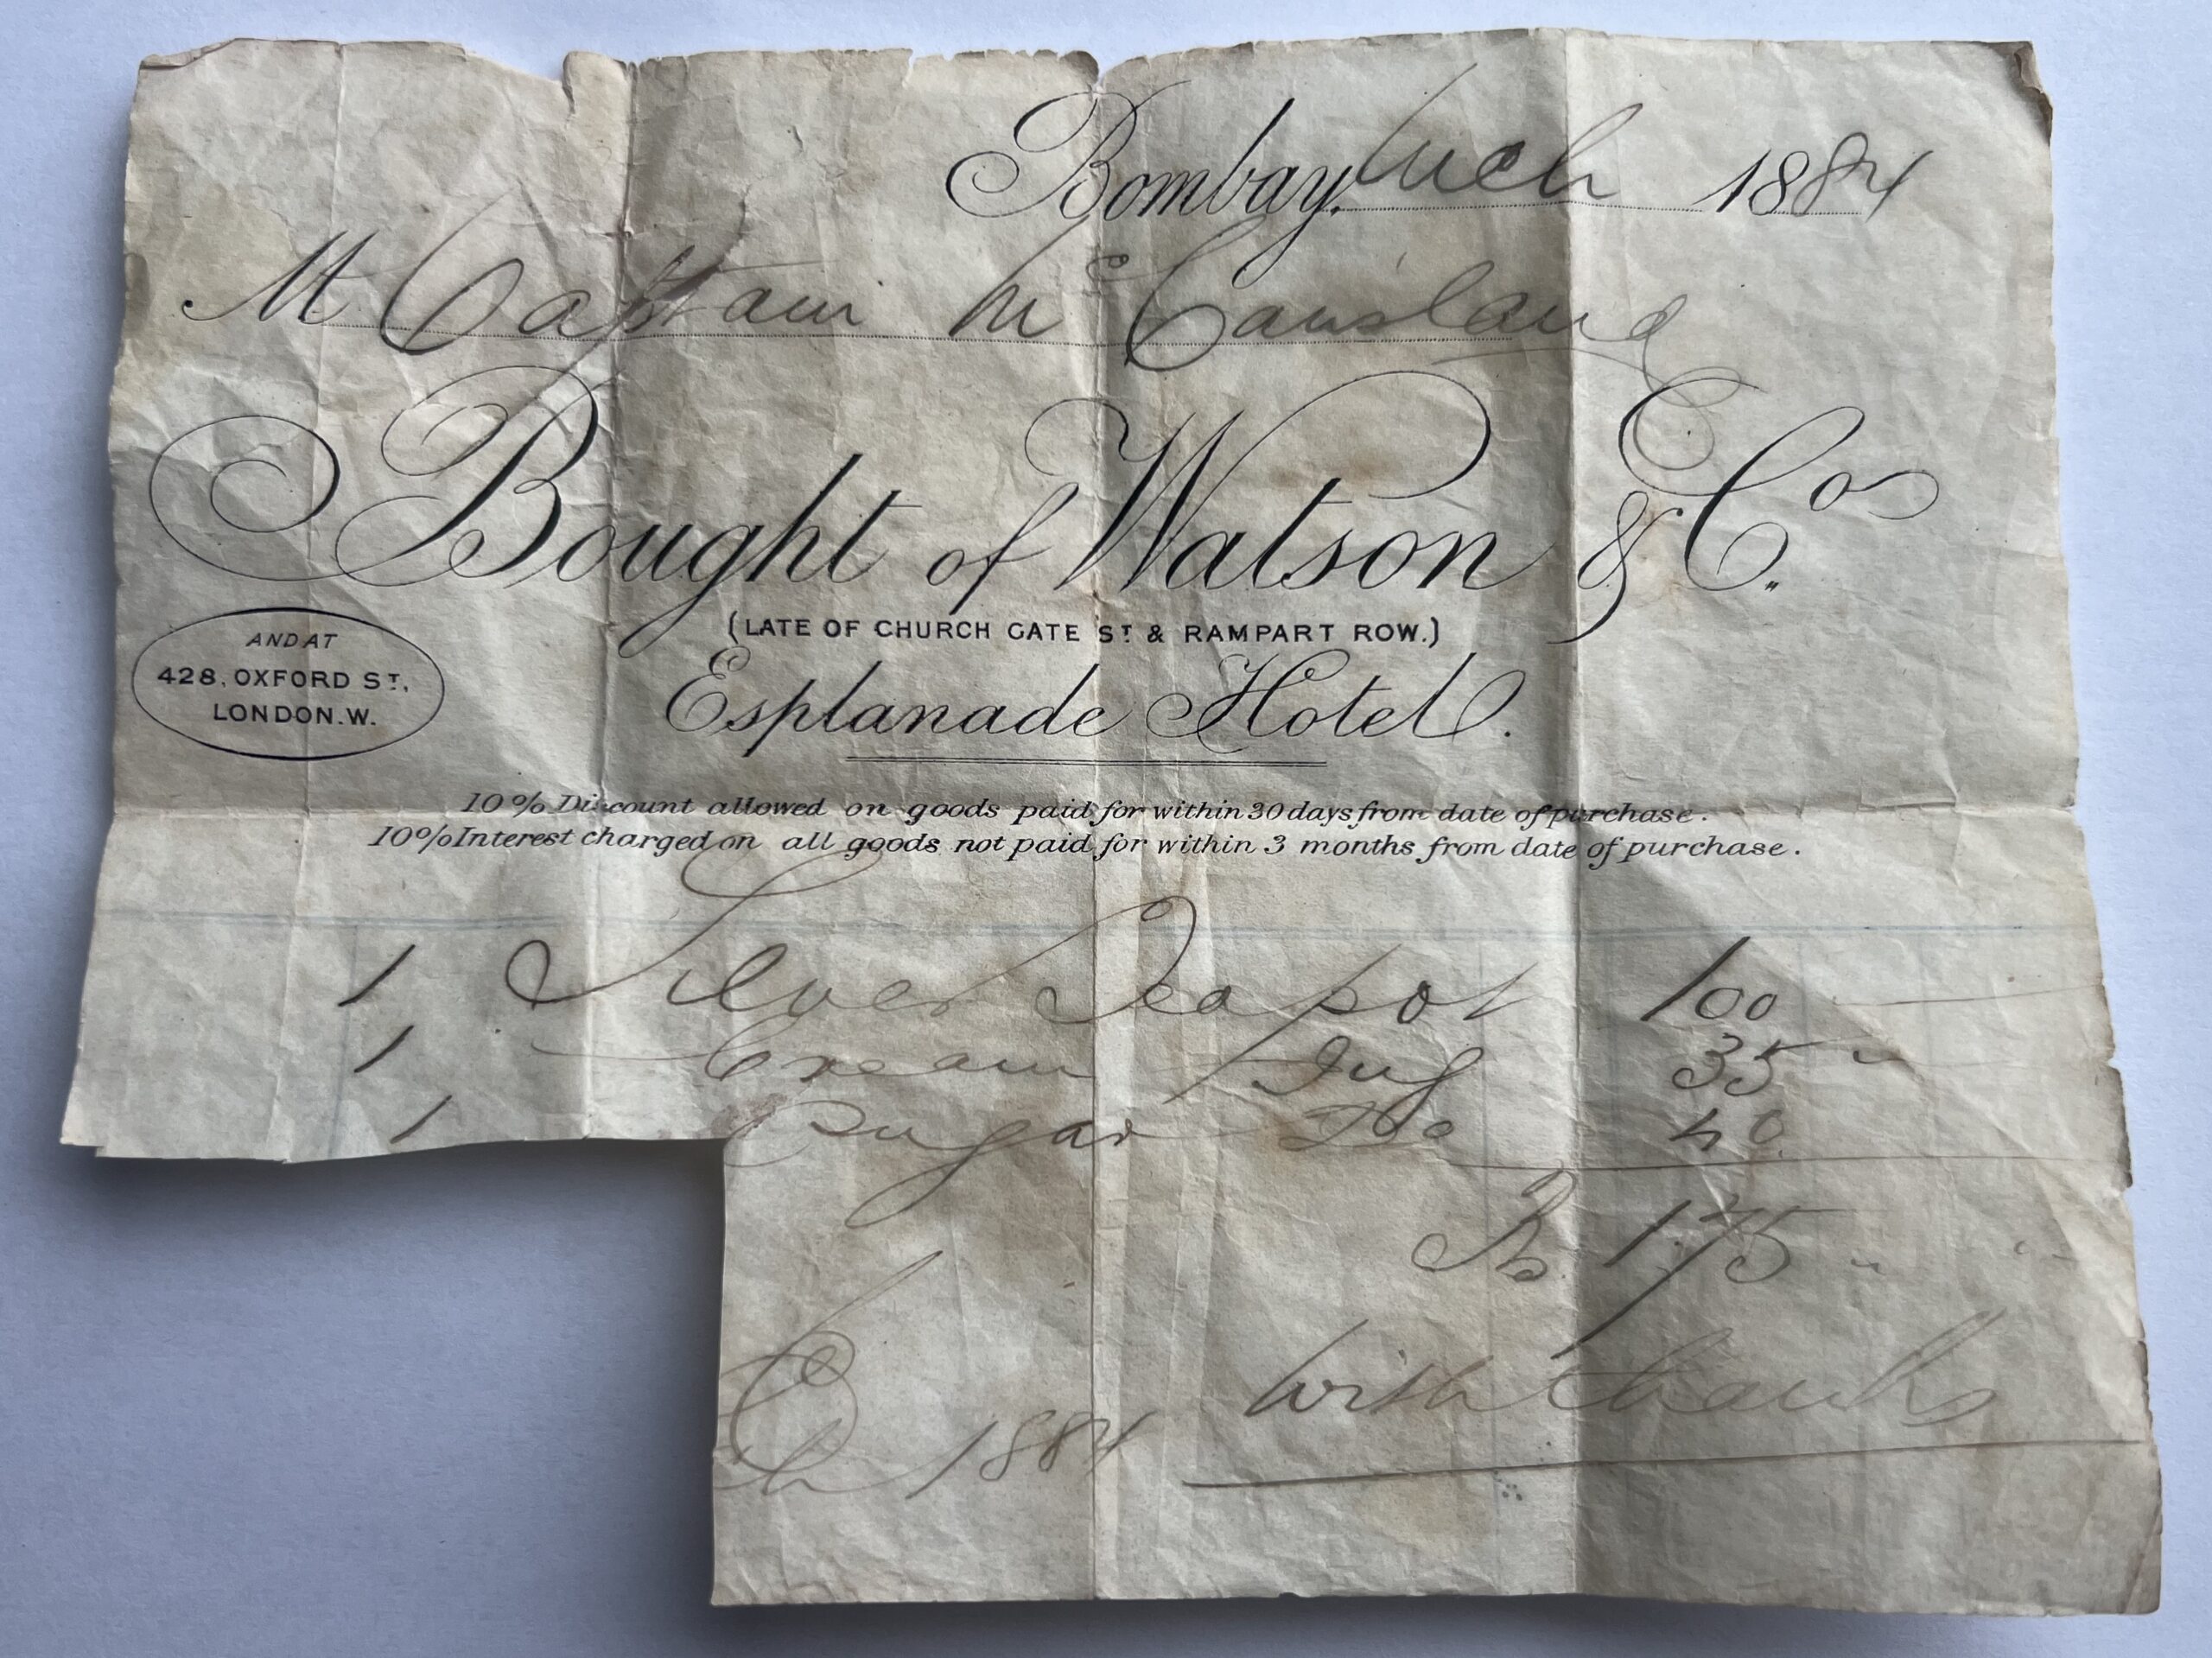 Bombay, Mch 1884
M Captain McCausland
Bought of Watson & Cos.
(LATE OF CHURCH GATE ST. & RAMPART ROW.)
AND AT
428, OXFORD ST.,
LONDON. W.
Esplanade Hotel.
10% Discount allowed on goods paid for within 30 days from date of purchase.
10% Interest charged on all goods not paid for within 3 months from date of purchase.
1 Silver Teapot 100
1 Cream Jug 35 "
1 Sugar Do 40
Rs 175 "
With thanks
1884